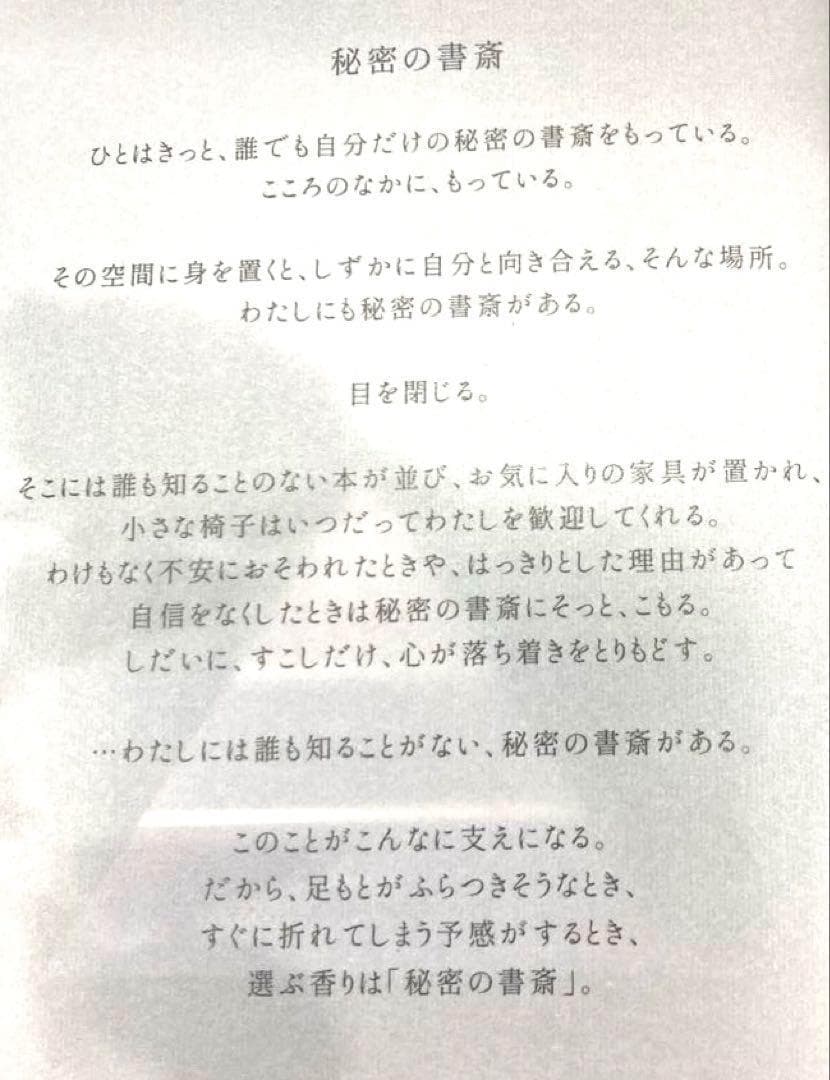 秘密の書斎
ひとはきっと、誰でも自分だけの秘密の書斎をもっている。
こころのなかに、もっている。
その空間に身を置くと、しずかに自分と向き合える、そんな場所。
わたしにも秘密の書斎がある。
目を閉じる。
そこには誰も知ることのない本が並び、お気に入りの家具が置かれ、
小さな椅子はいつだってわたしを歓迎してくれる。
わけもなく不安におそわれたときや、はっきりとした理由があって
自信をなくしたときは秘密の書斎にそっと、こもる。
しだいに、すこしだけ、心が落ち着きをとりもどす。
…わたしには誰も知ることがない、秘密の書斎がある。
このことがこんなに支えになる。
だから、足もとがふらつきそうなとき、
すぐに折れてしまう予感がするとき、
選ぶ香りは「秘密の書斎」。